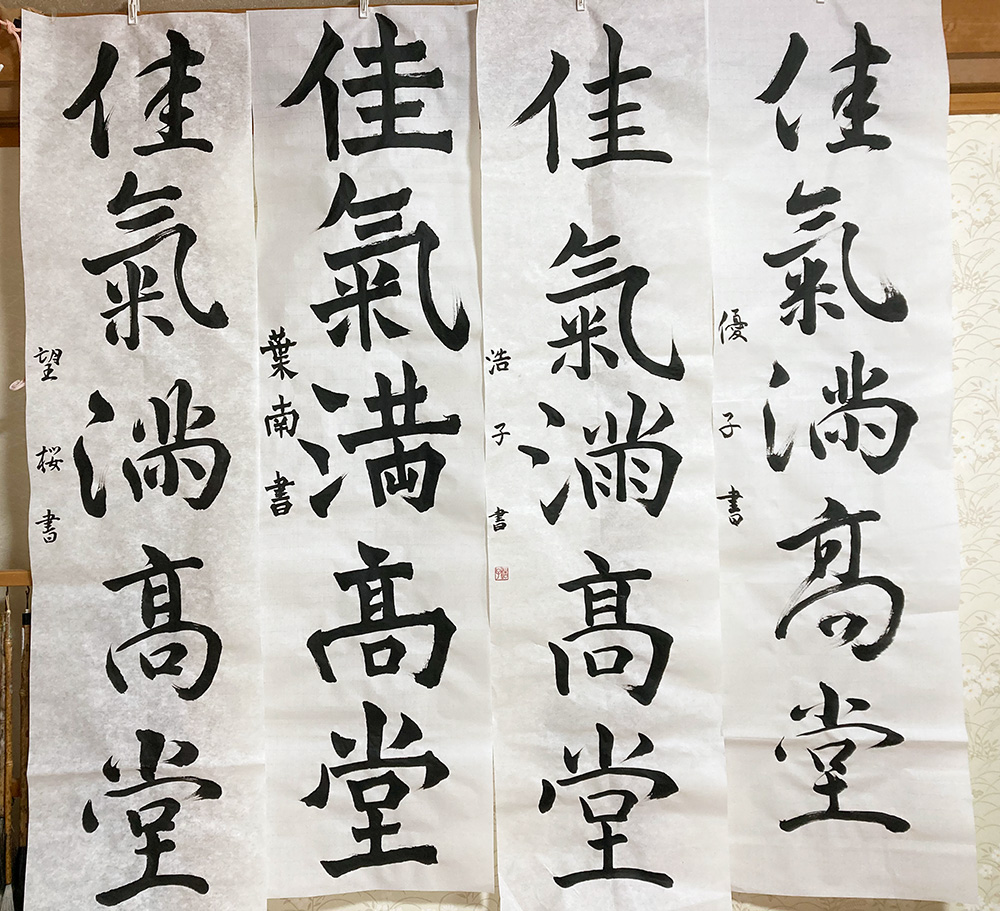 佳氣満高堂
優子書
佳氣満高堂
浩子書
佳氣満高堂
葉南書
佳氣満高堂
望桜書